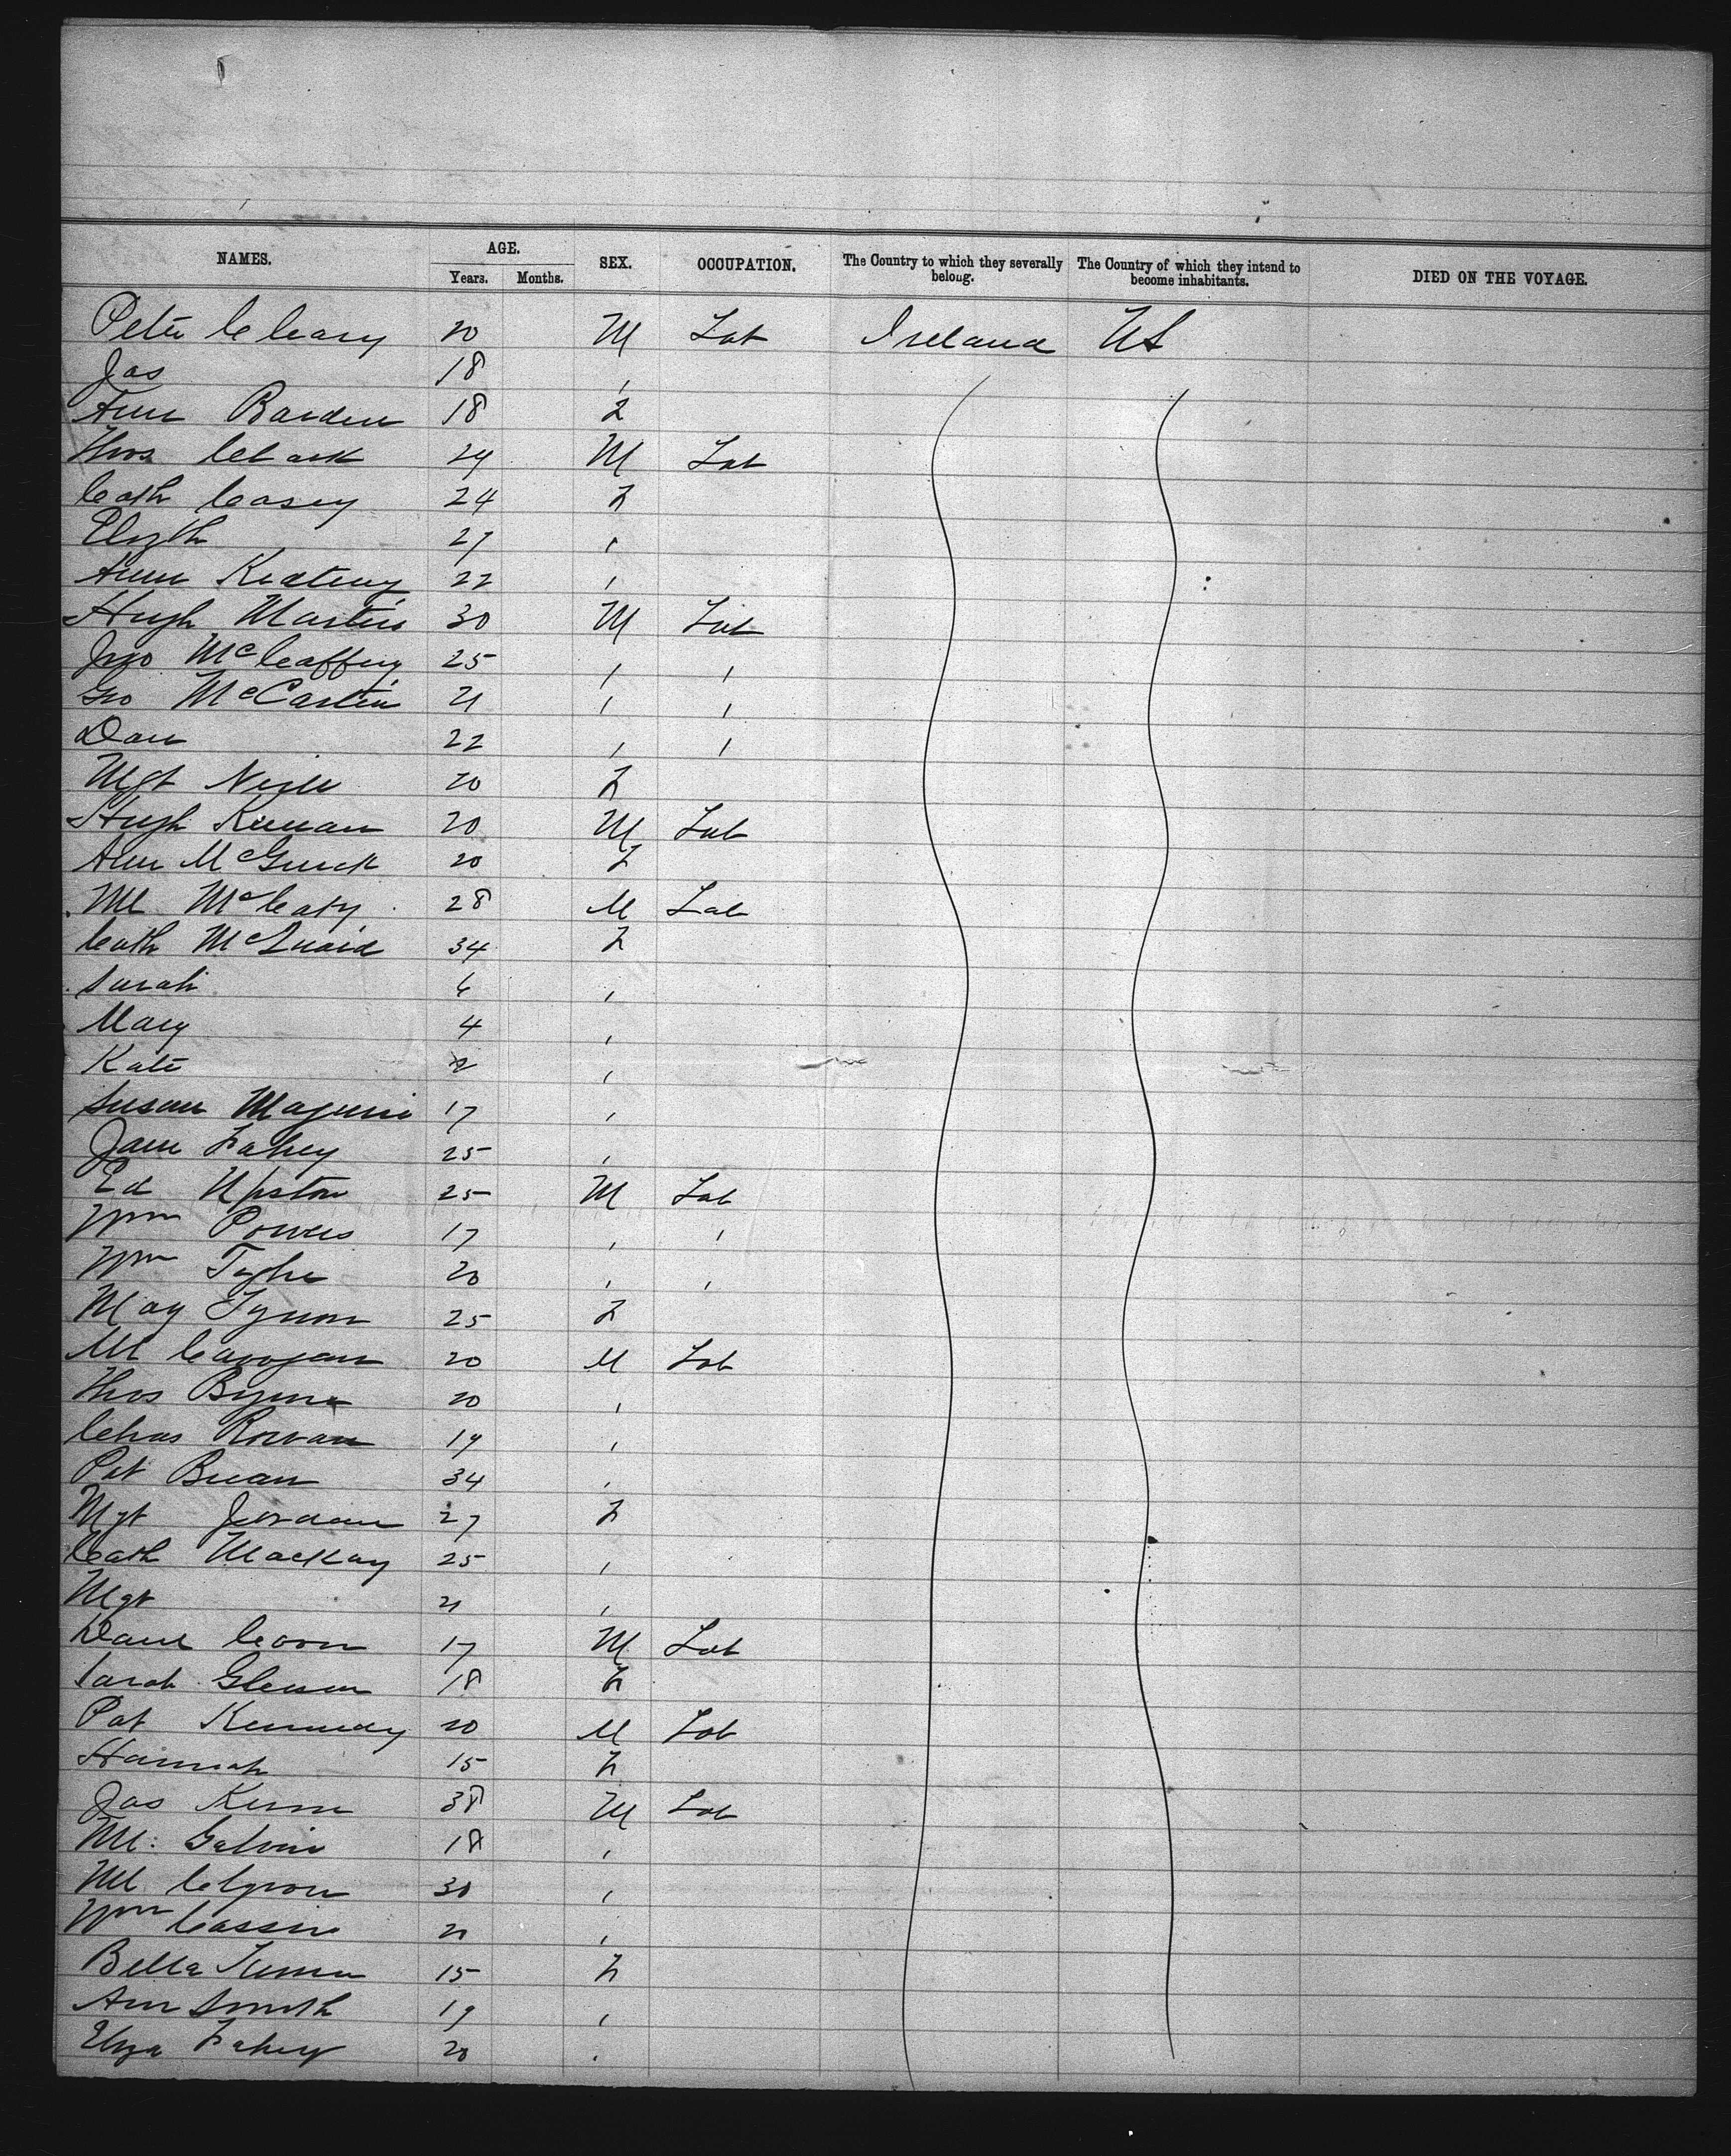 NAMES. AGE. SEX. OCCUPATION. The Country to which they severally belong. The Country of which they intend to become inhabitants. DIED ON THE VOYAGE.
Years. Months.
Peter Cleary 20 M Lab Ireland US
Jas 18 ,
Ann Barden 18 F
Thos Clark 24 M Lab
Cath Casey 24 F
Elizth 27 ,
Anne Keating 22 ,
Hugh Martin 30 M Lab
Jno McCaffery 25 , ,
Geo McCartin 21 , ,
Dan 22 , ,
Mgt Neill 20 F
Hugh Keenan 20 M Lab
Ann McGurck 20 F
Ml McCaty 28 M Lab
Cath McQuaid 34 F
Sarah 6 ,
Mary 4 ,
Kate 2 ,
Susan Maguire 17 ,
Jane Fahey 25 ,
Ed Upston 25 M Lab
Wm Powers 17 , ,
Wm Tighe 20 , ,
May Tynon 25 F
Ml Cavogan 20 M Lab
Thos Byrne 20 ,
Chas Rowan 19 ,
Pat Breean 34 ,
Mgt Jordan 27 F
Cath Mackay 25 ,
Mgt 21 ,
Danl Coom 17 M Lab
Sarah Gleeson 18 F
Pat Kennedy 20 M Lab
Hannah 15 F
Jas Kenne 38 M Lab
Ml. Galvin 18 ,
Ml 30 ,
Wm Cassin 21 ,
Bella 15 F
Ann Smith 19 ,
Eliza Fahey 20 .